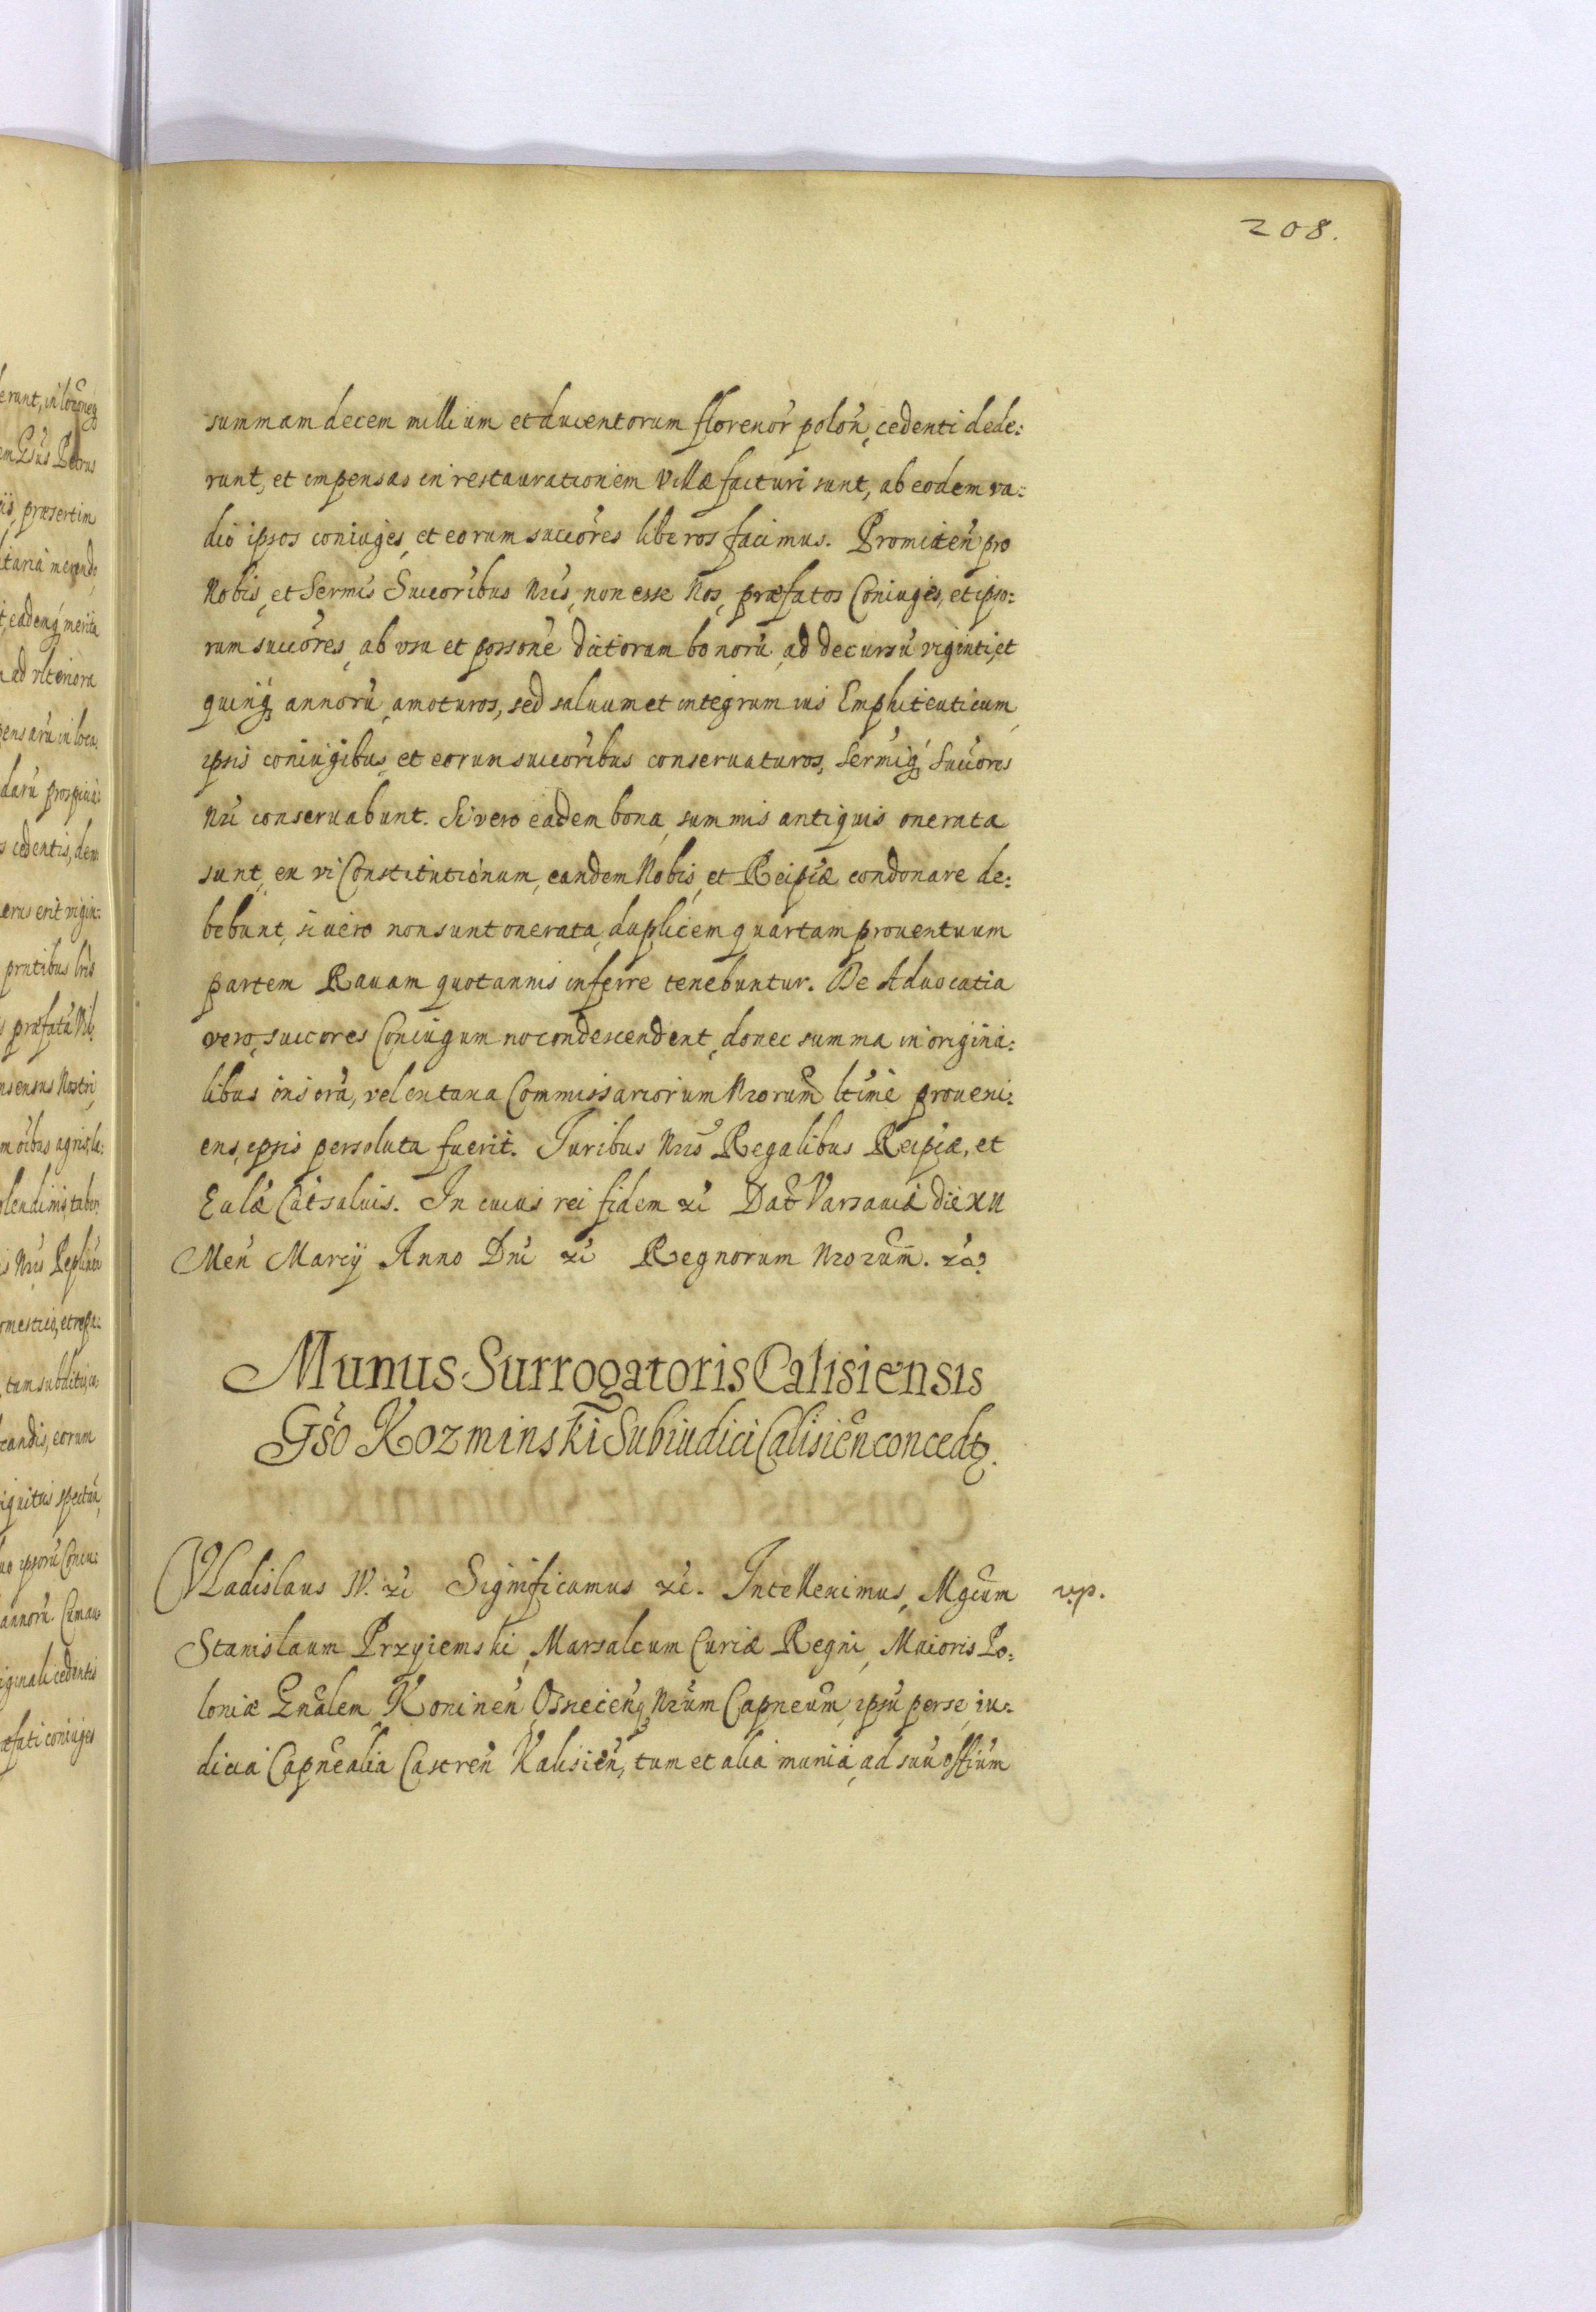 208.
summam decem millium et ducentorum florenor polon, cedenti dede:
runt, et impensas in restaurationem Villæ facturi sunt, ab eodem va:
dio ipsos coniuges, et eorum succōres liberos facimus. Promitten̄ pro
Nobis, et Sermis Succoribus Nris, non esse Nos, præfatos Coniuges, et ipso:
rum succōres, ab vsu et possone dictorum bonorū, ad decursū viginti, et
quinq̧ annorū, amoturos, sed saluum et integrum ius Emphiteuticum,
ipsis coniugibus, et eorum succoribus conseruaturos, Sermiq̧ Succōres
Nri conseruabunt. Si vero eadem bona, summis antiquis onerata
sunt, ex vi Constitutionum, eandem Nobis, et Reipcæ condonare de:
bebunt, si vero non sunt onerata, duplicem quartam prouentuum
partem Rauam quotannis inferre tenebuntur. De Aduocatia
vero, succores Coniugum nō condescendent, donec summa in origina:
libus inscrā, vel ex taxa Commissariorum Nrorum ltime proueni:
ens, ipsis persoluta fuerit. Juribus Nris Regalibus Reipcæ, et
Eulæ Cat saluis. In cuius rei fidem &c Dat Varsauiæ die XII
Men̄ Marcij Anno Dni &c Regnorum Nrorum. &a.
Munus Surrogatoris Calisiensis
Gso Kozminski Subiudici Calisien̄ concedt.
Vladislaus IV. &c Significamus &c. Intelleximus, Mgcum
v.p.
Stanislaum Przyiemski, Marsalcum Curiæ Regni, Maioris Po:
loniæ Gnalem, Koninen̄ Osnecen̄q̧ Nrum Capneum, ipsū per se, iu:
dicia Capnealia Castren̄ Kalisien̄, tum et alia munia, ad suū offium